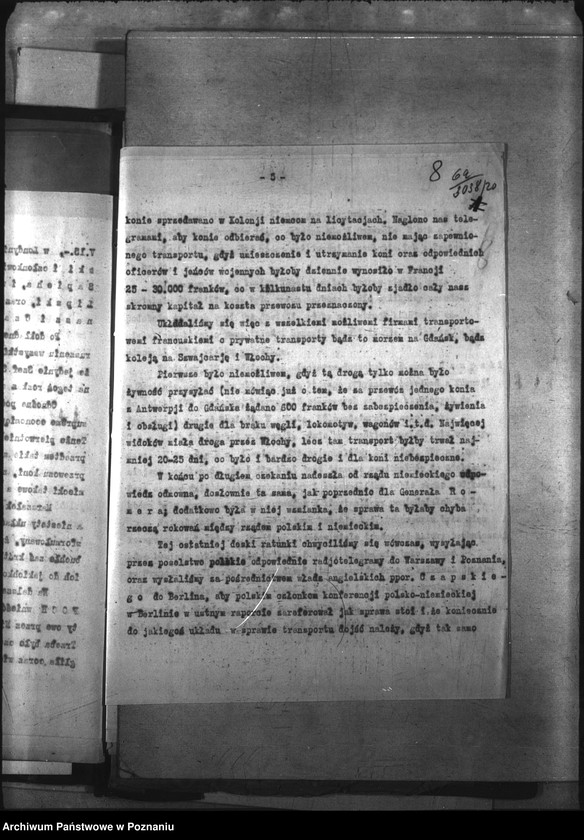 8 6a
3038/20
- 5 -
konie sprzedawano w Kolonji niemcom na licytacjach. Naglono nas tele-
gramami, aby konie odbierać, co było niemożliwem, nie mając zapewnio-
nego transportu, gdyż umieszczenie i utrzymanie koni oraz odpowiednich
oficerów i jeńców wojennych byłoby dziennie wynosiło w Francji
25 - 30.000 franków, co w kilkunastu dniach byłoby zjadło cały nasz
skromny kapitał na koszta przewozu przeznaczony.
Układaliśmy się więc z wszelkiemi możliwemi firmami transporto-
wemi francuskiemi o prywatne transporty bądź to morzem na Gdańsk, bądź
koleją na Szwajcarję i Włochy.
Pierwsze było niemożliwem, gdyż tą drogą tylko można było
żywność przysyłać (nie mówiąc już o tem, że za przewóz jednego konia
z Antwerpji do Gdańska żądano 600 franków bez zabezpieczenia, żywienia
i obsługi) drugie dla braku węgli, lokomotyw, wagonów i.t.d. Najwięcej
widoków miała droga przez Włochy, lecz tam transport byłby trwał naj-
mniej 20-25 dni, co było i bardzo drogie i dla koni niebezpieczne.
W końcu po długiem czekaniu nadeszła od rządu niemieckiego odpo-
wiedz odmowna, dosłownie ta sama, jak poprzednio dla Generała R o -
m e r a; dodatkowo była w niej wzmianka, że sprawa ta byłaby chyba
rzeczą rokowań między rządem polskim i niemieckim.
Tej ostatniej deski ratunku chwyciliśmy się wówczas, wysyłając
przez poselstwo polskie odpowiednie radjotelegramy do Warszawy i Poznania,
oraz wysłaliśmy za pośrednictwem władz angielskich ppor. C z a p s k i e -
g o do Berlina, aby polskim członkom konferencji polsko-niemieckiej
w Berlinie w ustnym raporcie zareferował jak sprawa stoi i że koniecznie
do jakiegoś układu w sprawie transportu dojść należy, gdyż tak samo
Archiwum Państwowe w Poznaniu